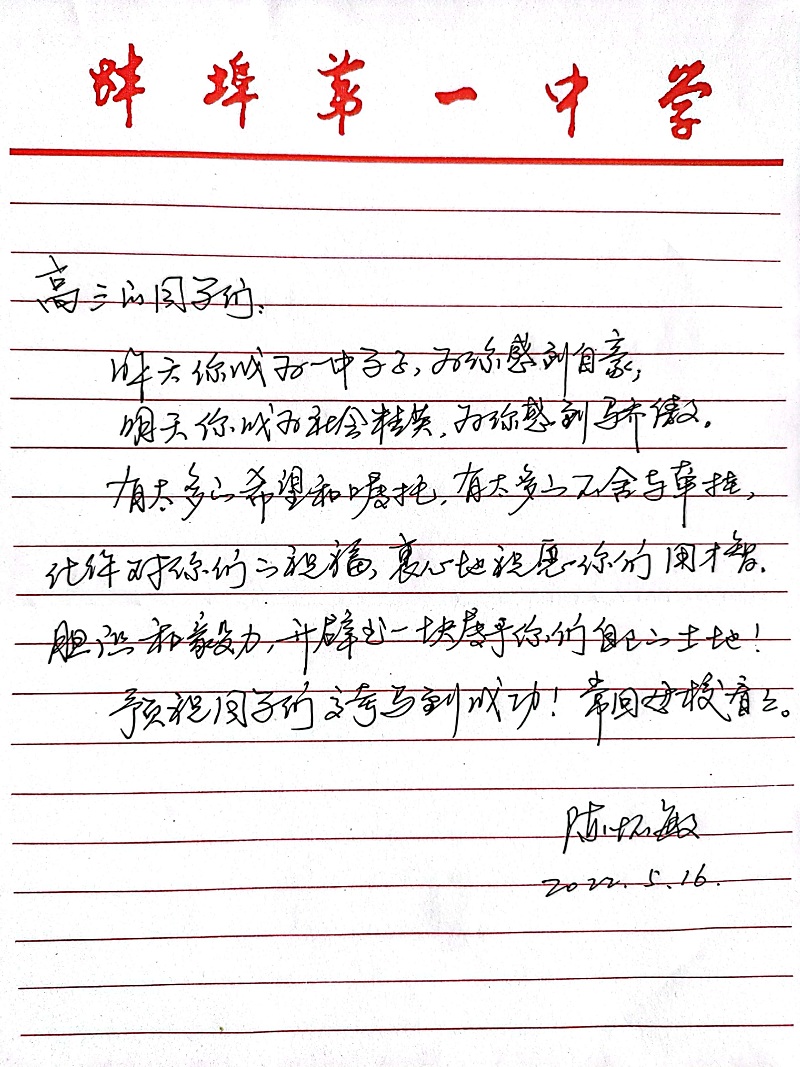 蚌埠第一中学
高三的同学们:
昨天你成为一中学子,为你感到自豪;
明天你成为社会精英,为你感到骄傲。
有太多的希望和嘱托,有太多的不舍与牵挂,
化作对你们的祝福,衷心地祝愿你们用才智、
胆识和毅力,开辟出一块属于你们自己的土地!
预祝同学们高考马到成功!常回母校看看。
陈怀敏
2022.5.16.